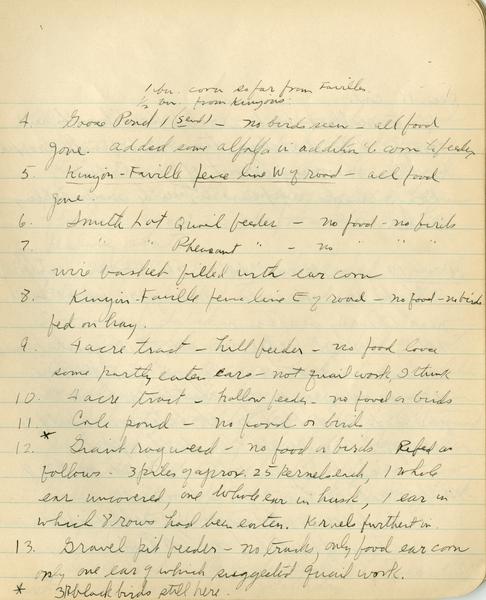 1 bu. corn so far from Faville.
½ bu. from Kinyons.
4. Goose Pond 1 (send) - no birds seen - all food
gone. added some alfalfa in addition to corn to feeder
5. Kinyon-Faville fence line W of road - all food
gone.
6. Smith Lot Quail feeder - no food - no birds
7. " " Pheasant " - no " " "
wire basket filled with ear corn
8. Kinyon-Faville fence line E of road - no food - no birds
fed on hay.
9. 4 acre tract - hill feeder - no food
some partly eaten ears - not quail work, I think
10. 4 acre tract - hollow feeder - no food or birds
11. Cole pond - no food or birds
12.* Giant ragweed - no food or birds Refed as
follows - 3 piles of approx. 25 kernels each, 1 whole
ear uncovered, one whole ear in husk, 1 ear in
which 8 rows had been eaten. Kernels furthest in.
13. Gravel pit feeder - no tracks, only food ear corn
only one ear of which suggested quail work.
* blackbirds still here.